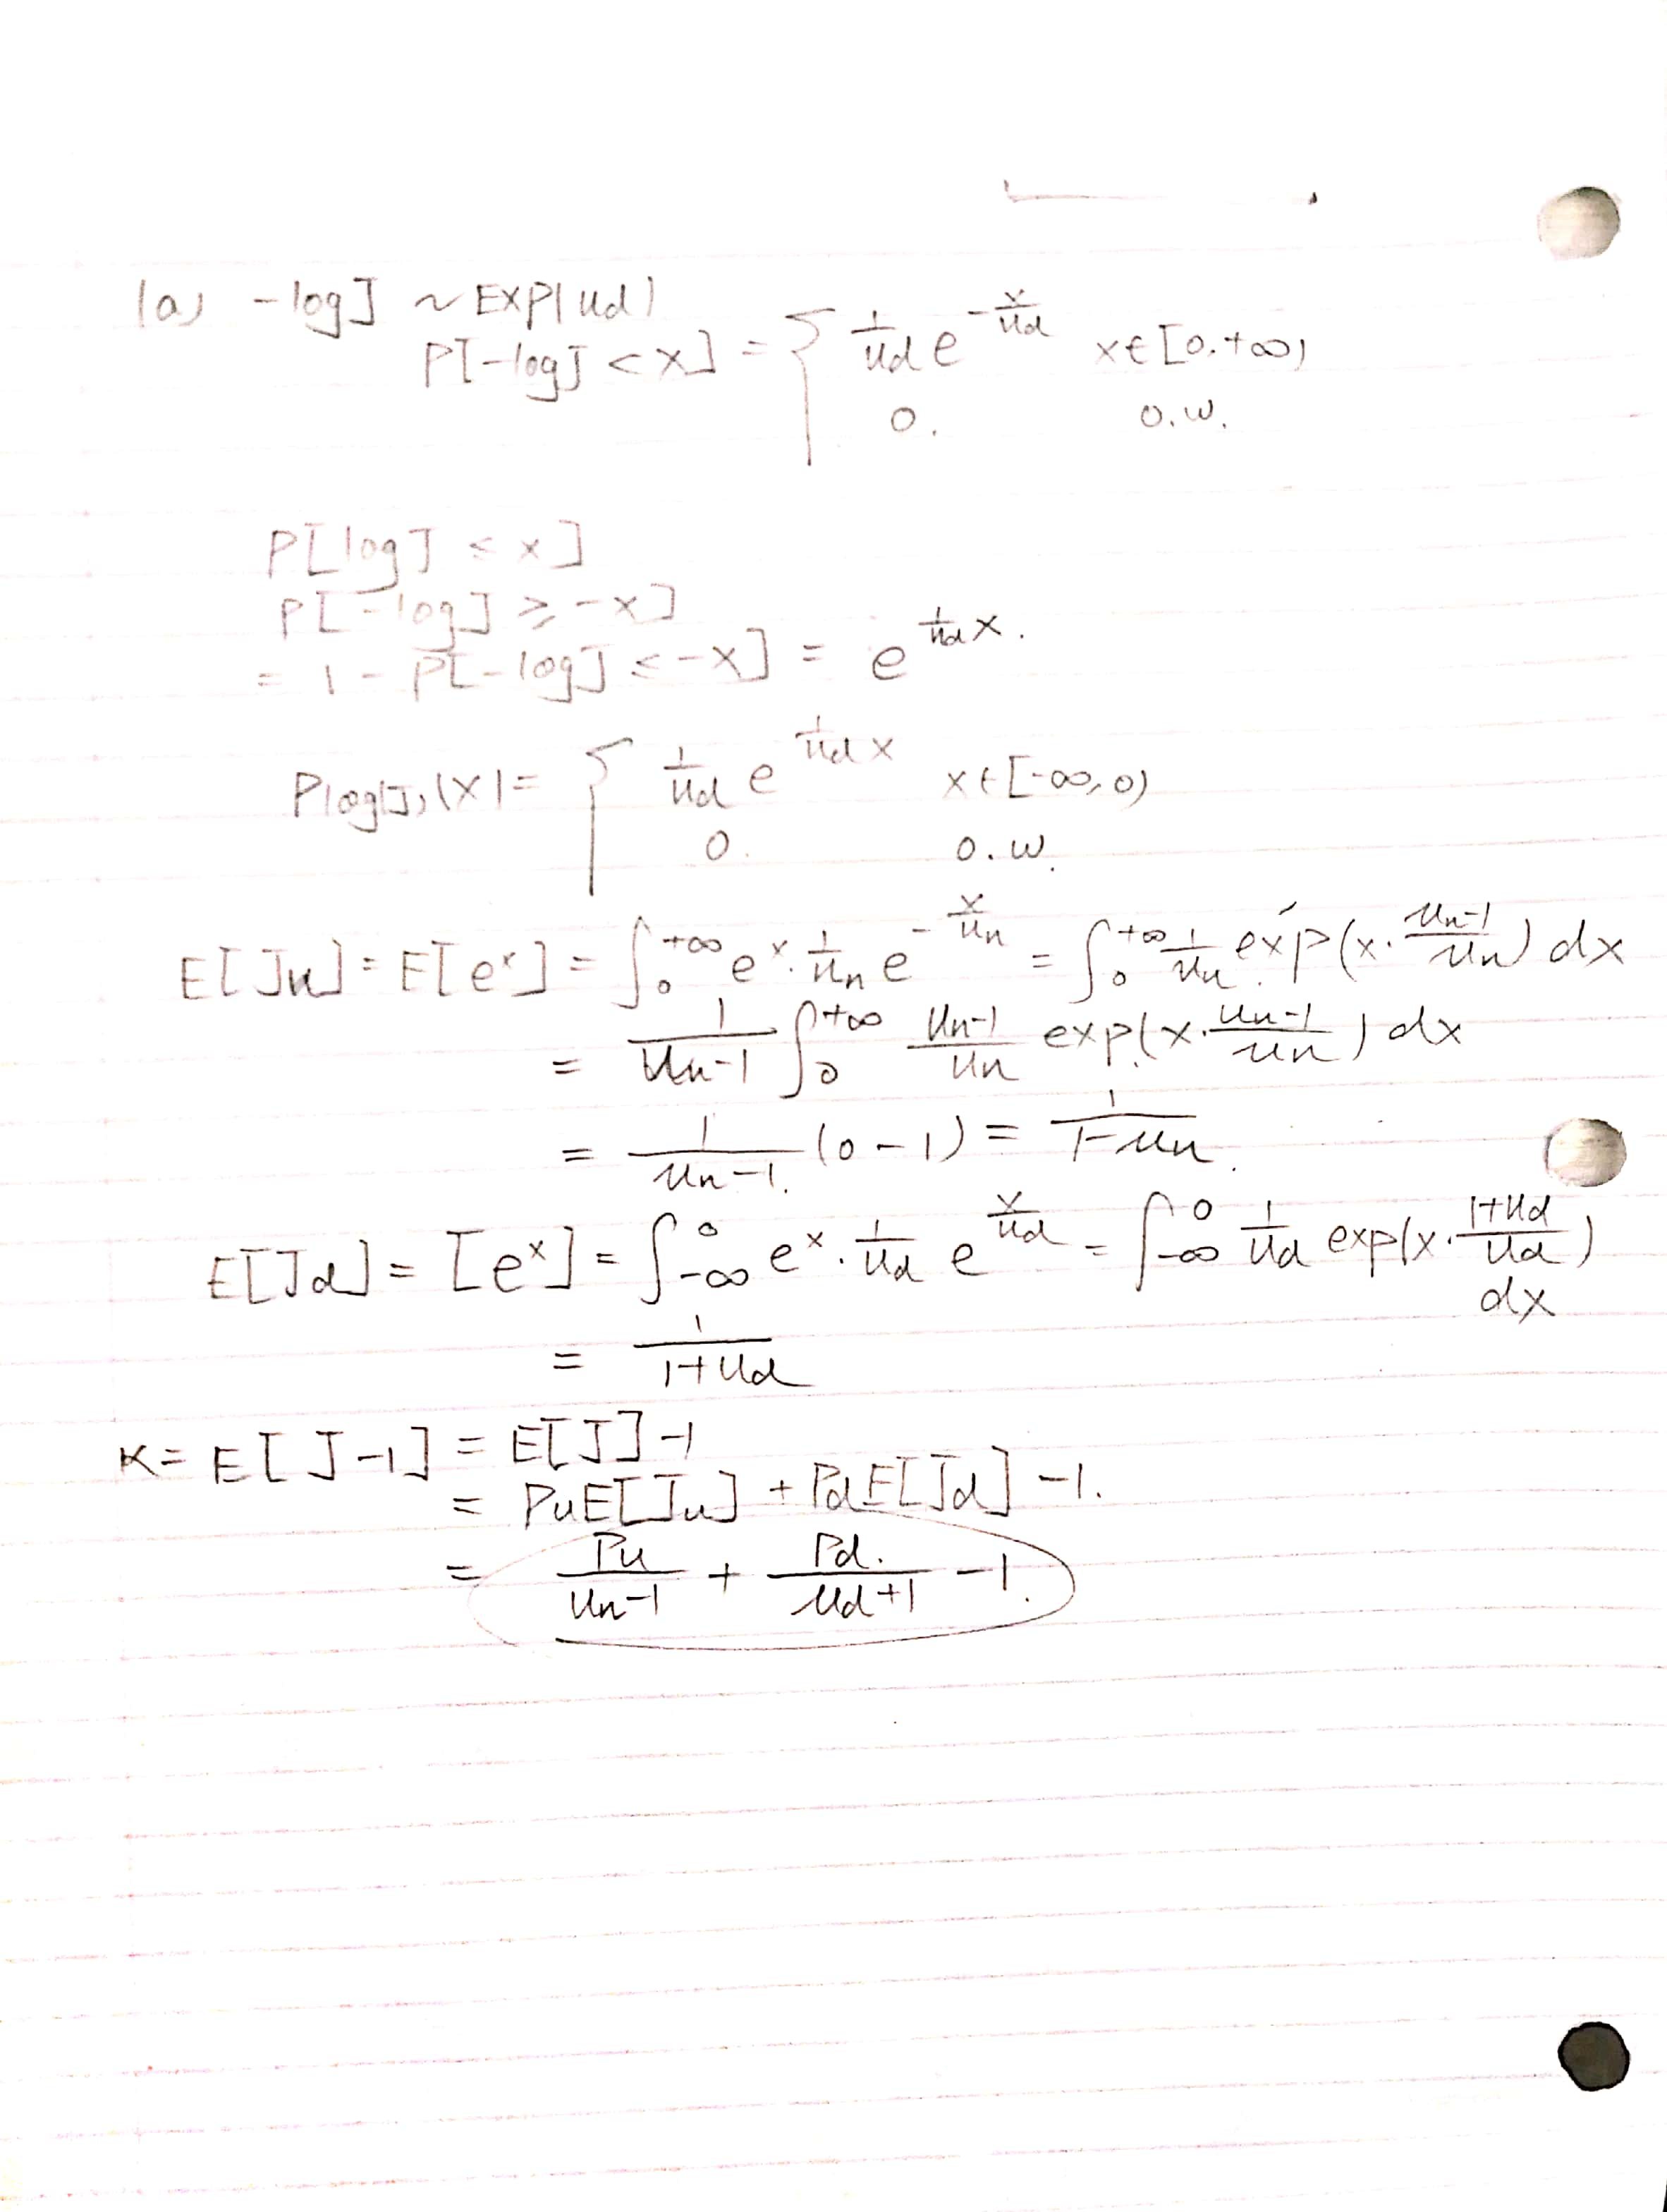 (a) -log J ~ EXP(ud)
P[-log J < x] = { 1/ud e^{-x/ud} x∈[0,+∞)
0. o.w.
P[log J ≤ x]
P[-log J ≥ -x]
= 1 - P[-log J ≤ -x] = e^{1/ud x}.
Plog(J)(x) = { 1/ud e^{1/ud x} x∈[-∞,0)
0. o.w.
E[Ju] = E[e^x] = ∫_0^{+∞} e^x · 1/un e^{-x/un} = ∫_0^{+∞} 1/un exp(x · (un-1)/un) dx
= 1/(un-1) ∫_0^{+∞} (un-1)/un exp(x · (un-1)/un) dx
= 1/(un-1) (0-1) = 1/(1-un).
E[Jd] = [e^x] = ∫_{-∞}^0 e^x · 1/ud e^{x/ud} = ∫_{-∞}^0 1/ud exp(x · (1+ud)/ud)
dx
= 1/(1+ud)
K = E[J-1] = E[J]-1
= PuE[Ju] + PdE[Jd] -1.
= Pu/(un-1) + Pd/(ud+1) -1.